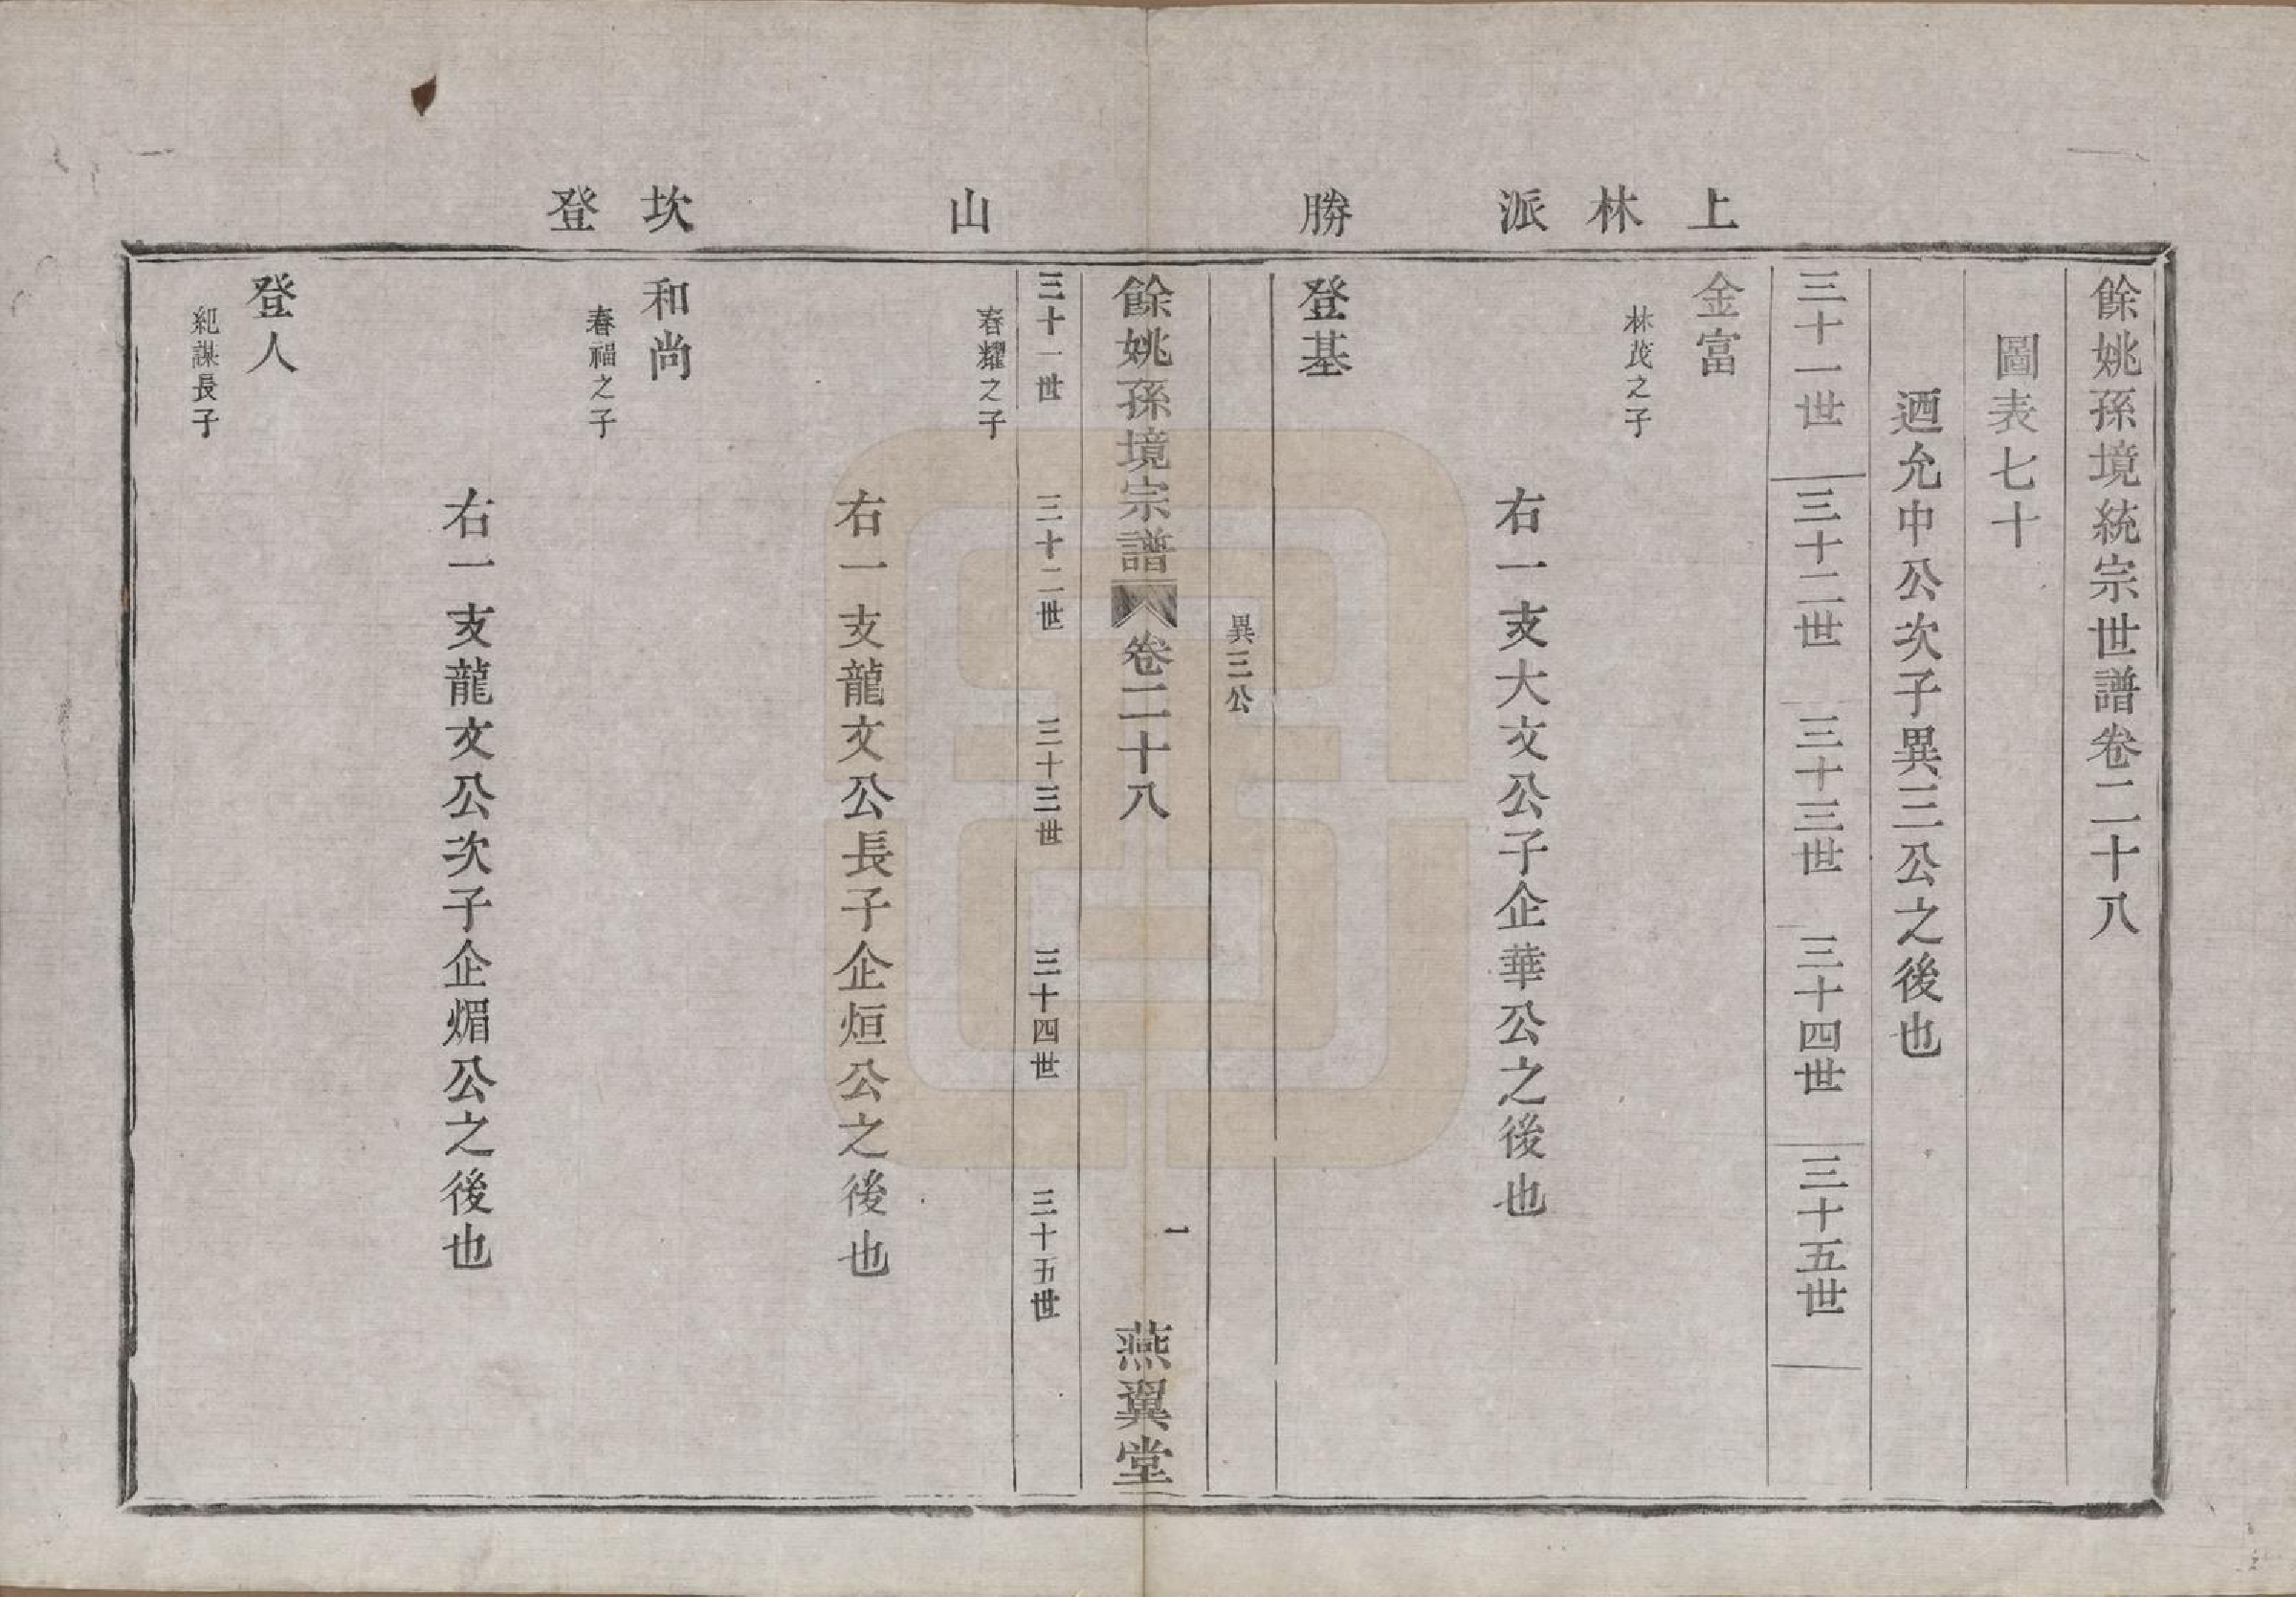 上林派
勝
山
坎登
餘姚孫境統宗世譜卷二十八
圖表七十
迺允中公次子異三公之後也
三十一世 三十二世 三十三世 三十四世 三十五世
金富
林茂之子
右一支大文公子企華公之後也
登基
異三公
餘姚孫境宗譜 卷二十八 一 燕翼堂
三十一世 三十二世 三十三世 三十四世 三十五世
春耀之子
右一支龍文公長子企烜公之後也
和尚
春福之子
右一支龍文公次子企煝公之後也
登人
紀謀長子